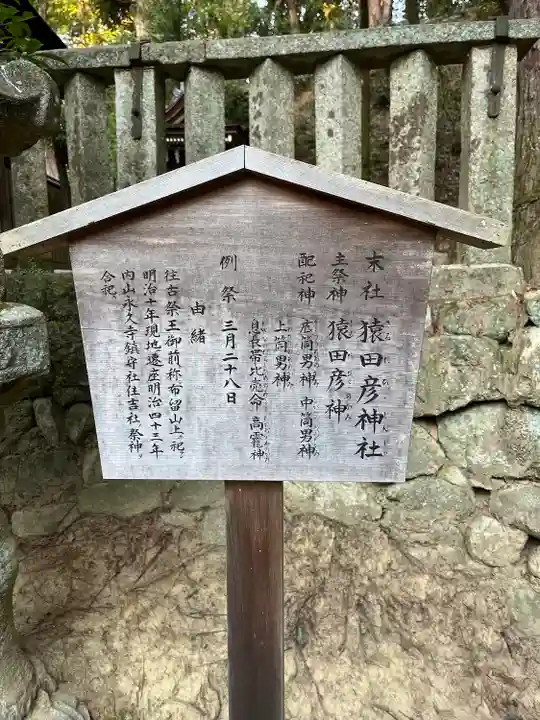 末社 猿田彦神社
主祭神 猿田彦神
配祀神 底筒男神 中筒男神
上筒男神
息長帯比売命 高靇神
例祭 三月二十八日
由緒
往古祭王御前称布留山上ニ祀。
明治十年現地遷座明治四十三年
内山永久寺鎮守社住吉社祭神。
合祀。